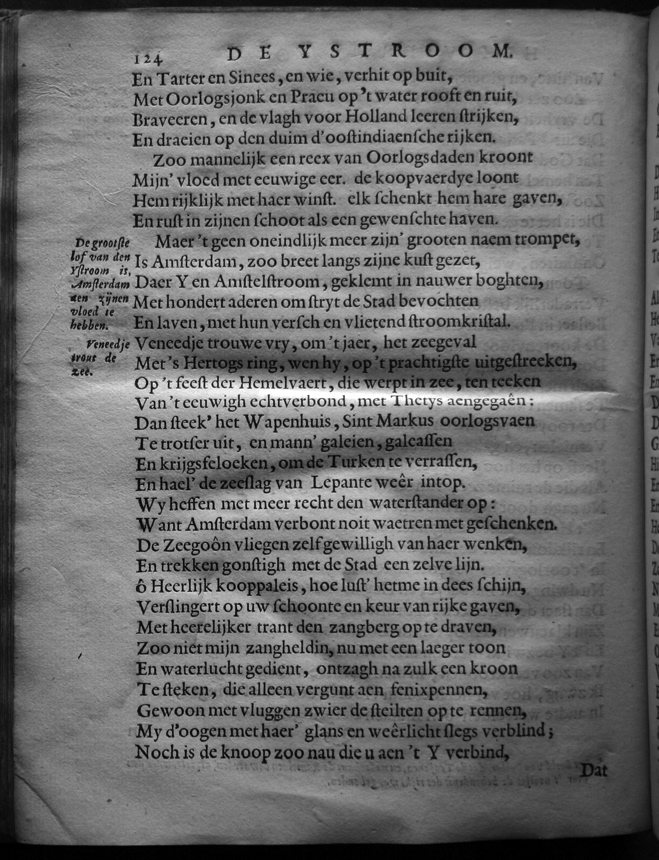 124 DE YSTROOM.
En Tarter en Sinees, en wie, verhit op buit,
Met Oorlogsjonk en Praeu op 't water rooft en ruit,
Braveeren, en de vlagh voor Holland leeren strijken,
En draeien op den duim d'oostindiaensche rijken.
Zoo mannelijk een reex van Oorlogsdaden kroont
Mijn' vloed met eeuwige eer. de koopvaerdye loont
Hem rijklijk met haer winst. elk schenkt hem hare gaven,
En rust in zijnen schoot als een gewenschte haven.
Maer 't geen oneindlijk meer zijn' grooten naem trompet,
Is Amsterdam, zoo breet langs zijne kust gezet,
Daer Y en Amstelstroom, geklemt in nauwer boghten,
Met hondert aderen om stryt de Stad bevochten
En laven, met hun versch en vlietend stroomkristal.
De grootste
lof van den
Ystroom is,
Amsterdam
aen zijnen
vloed te
hebben.
Veneedje trouwe vry, om 't jaer, het zeegeval
Met 's Hertogs ring, wen hy, op 't prachtigste uitgestreeken,
Op 't feest der Hemelvaert, die werpt in zee, ten teeken
Van 't eeuwigh echtverbond, met Thetys aengegaên:
Veneedje
trout de
zee.
Dan steek' het Wapenhuis, Sint Markus oorlogsvaen
Te trotser uit, en mann' galeien, galeassen
En krijgsfeloeken, om de Turken te verrassen,
En hael' de zeeslag van Lepante weêr intop.
Wy heffen met meer recht den waterstander op:
Want Amsterdam verbont noit waetren met geschenken.
De Zeegoôn vliegen zelf gewilligh van haer wenken,
En trekken gonstigh met de Stad een zelve lijn.
ô Heerlijk kooppaleis, hoe lust' hetme in dees schijn,
Verslingert op uw schoonte en keur van rijke gaven,
Met heerelijker trant den zangberg op te draven,
Zoo niet mijn zangheldin, nu met een laeger toon
En waterlucht gedient, ontzagh na zulk een kroon
Te steken, die alleen vergunt aen fenixpennen,
Gewoon met vluggen zwier de steilten op te rennen,
My d'oogen met haer' glans en weêrlicht slegs verblind;
Noch is de knoop zoo nau die u aen 't Y verbind,
Dat